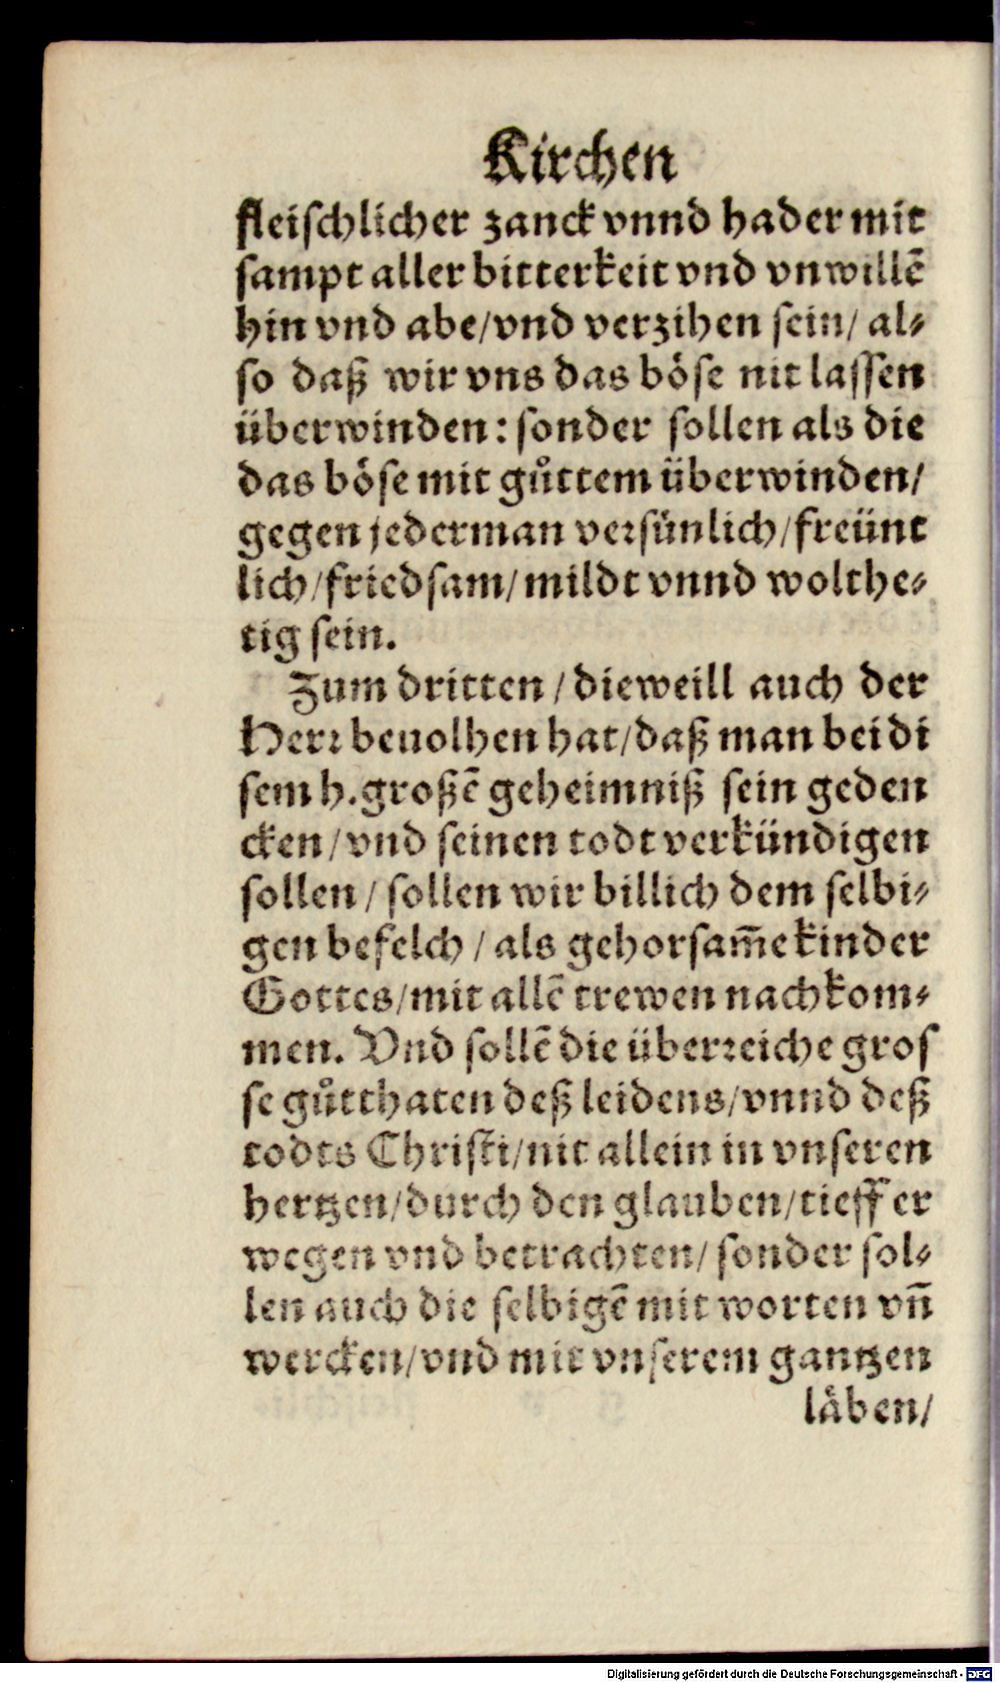 Kirchen
fleiſchlicher zanck vnnd hader mit
ſampt aller bitterkeit vnd vnwillẽ
hin vnd abe/vnd verzihen ſein/ al⸗
ſo daß wir vns das böſe nit laſſen
überwinden: ſonder ſollen als die
das böſe mit gůttem überwinden/
gegen jederman verſünlich/freünt
lich/friedſam/mildt vnnd wolthe⸗
tig ſein.
Zum dritten/ dieweill auch der
Herꝛ beuolhen hat/daß man bei di
ſem h.großẽ geheimniß ſein geden
cken/vnd ſeinen todt verkündigen
ſollen/ ſollen wir billich dem ſelbi⸗
gen befelch/ als gehorſam̃e kinder
Gottes/mit allẽ trewen nachkom⸗
men. Vnd ſollẽ die überꝛeiche groſ
ſe gůtthaten deß leidens/vnnd deß
todts Chriſti/nit allein in vnſeren
hertzen/durch den glauben/tieff er
wegen vnd betrachten/ ſonder ſol⸗
len auch die ſelbigẽ mit worten vñ
wercken/vnd mit vnſerem gantzen
låben/
Digitalisierung gefördert durch die Deutsche Forschungsgemeinschaft - DFG